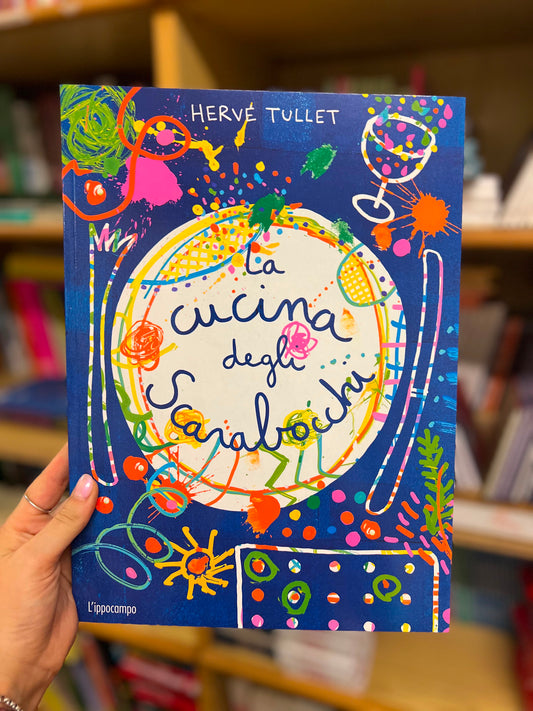 HERVÉ TULLET
La
cucina
degli
Scarabocchi
L'ippocampo